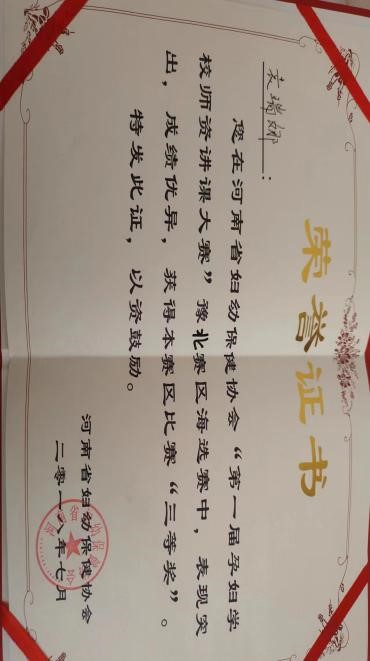 荣誉证书
袁瑞娜：
您在河南省妇幼保健协会“第一届孕妇学
校师资讲课大赛”豫北赛区海选赛中，表现突
出，成绩优异，获得本赛区比赛“三等奖”。
特发此证，以资鼓励。
河南省妇幼保健协会
二零一八年七月